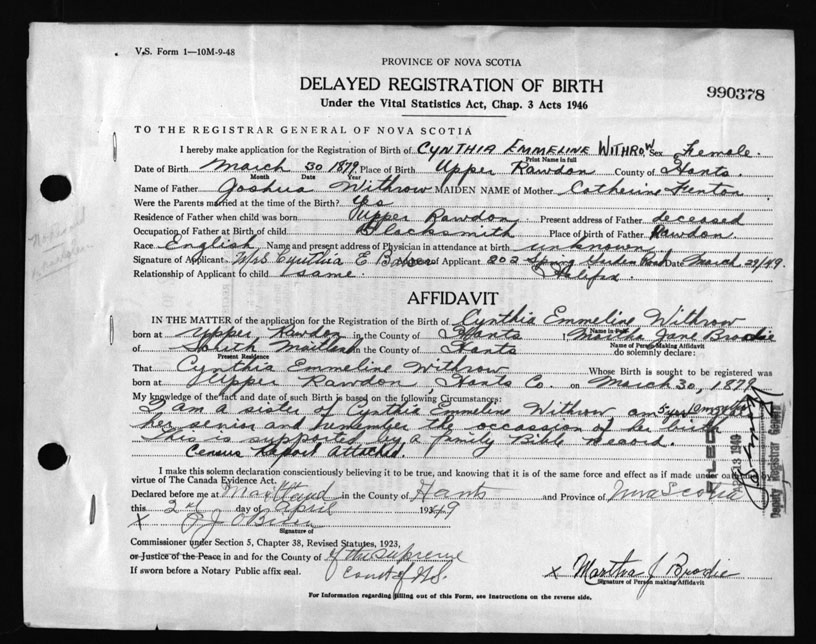 V.S. Form 1—10M-9-48
PROVINCE OF NOVA SCOTIA
DELAYED REGISTRATION OF BIRTH
990378
Under the Vital Statistics Act, Chap. 3 Acts 1946
TO THE REGISTRAR GENERAL OF NOVA SCOTIA
I hereby make application for the Registration of Birth of CYNTHIA EMMELINE WITHROW Sex Female.
Print Name in full
Date of Birth March 30 1879. Place of Birth Upper Rawdon County of Hants.
Month Date Year
Name of Father Joshua Withrow MAIDEN NAME of Mother Catherine Fenton
Were the Parents married at the time of Birth? yes
Residence of Father when child was born Upper Rawdon Present address of Father deceased
Occupation of Father at Birth of child Blacksmith Place of birth of Father Rawdon.
Race English Name and present address of Physician in attendance at birth unknown
Signature of Applicant Mrs Cynthia E of Applicant 202 Spring Garden Road Date March 29/49.
Relationship of Applicant to child same. Halifax
AFFIDAVIT
IN THE MATTER of the application for the Registration of the Birth of Cynthia Emmeline Withrow
Name in Full
born at Upper Rawdon in the County of Hants I, Martha Jane Brodie
Name of Person Making Affidavit
of South Maitland in the County of Hants do solemnly declare:
Present Residence
That Cynthia Emmeline Withrow Whose Birth is sought to be registered was
born at Upper Rawdon, Hants Co. on March 30, 1879
My knowledge of the fact and date of such Birth is based on the following Circumstances:
I am a sister of Cynthia Emmeline Withrow, am 5 yrs
her senior and remember the occassion of her birth
This is supported by a family Bible record.
Census Report attached.
I make this solemn declaration conscientiously believing it to be true, and knowing that it is of the same force and effect as if made under oath
virtue of The Canada Evidence Act.
Declared before me at Maitland in the County of Hants and Province of Nova Scotia
this 2nd day of April 1949
X J O'Brien
Signature of
Commissioner under Section 5, Chapter 38, Revised Statutes, 1923,
or Justice of the Peace in and for the County of of the supreme
If sworn before a Notary Public affix seal. court of N.S.
x Martha J Brodie
Signature of Person making Affidavit
For Information regarding filling out of this Form, see Instructions on the reverse side.
FILED
13 1949
Deputy Registrar General